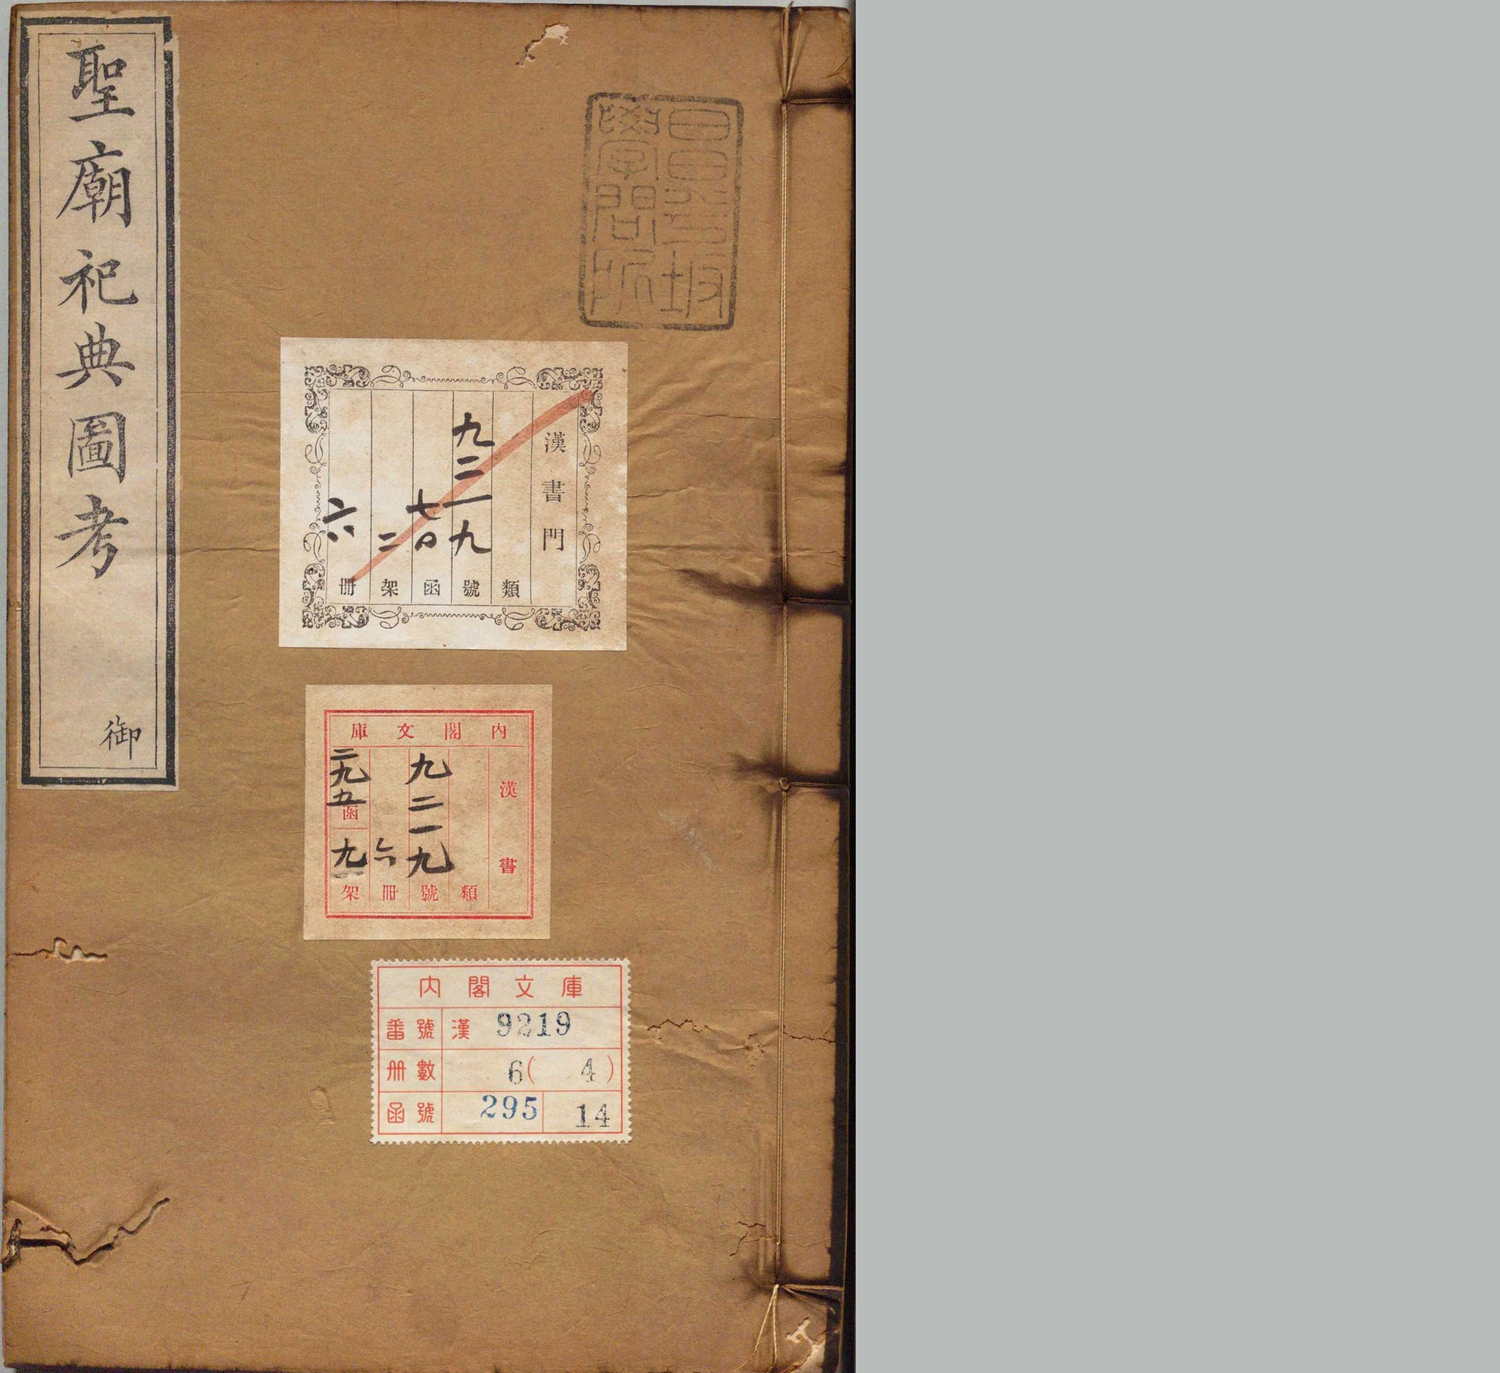 聖廟祀典圖考
御
昌平坂
學問所
漢書門
類
九二一九號
七〇函
二架
六冊
內閣文庫
漢書
類
九二一九號
六冊
二九五函
九架
內閣文庫
番號 漢 9219
册數 6(4)
函號 295 14